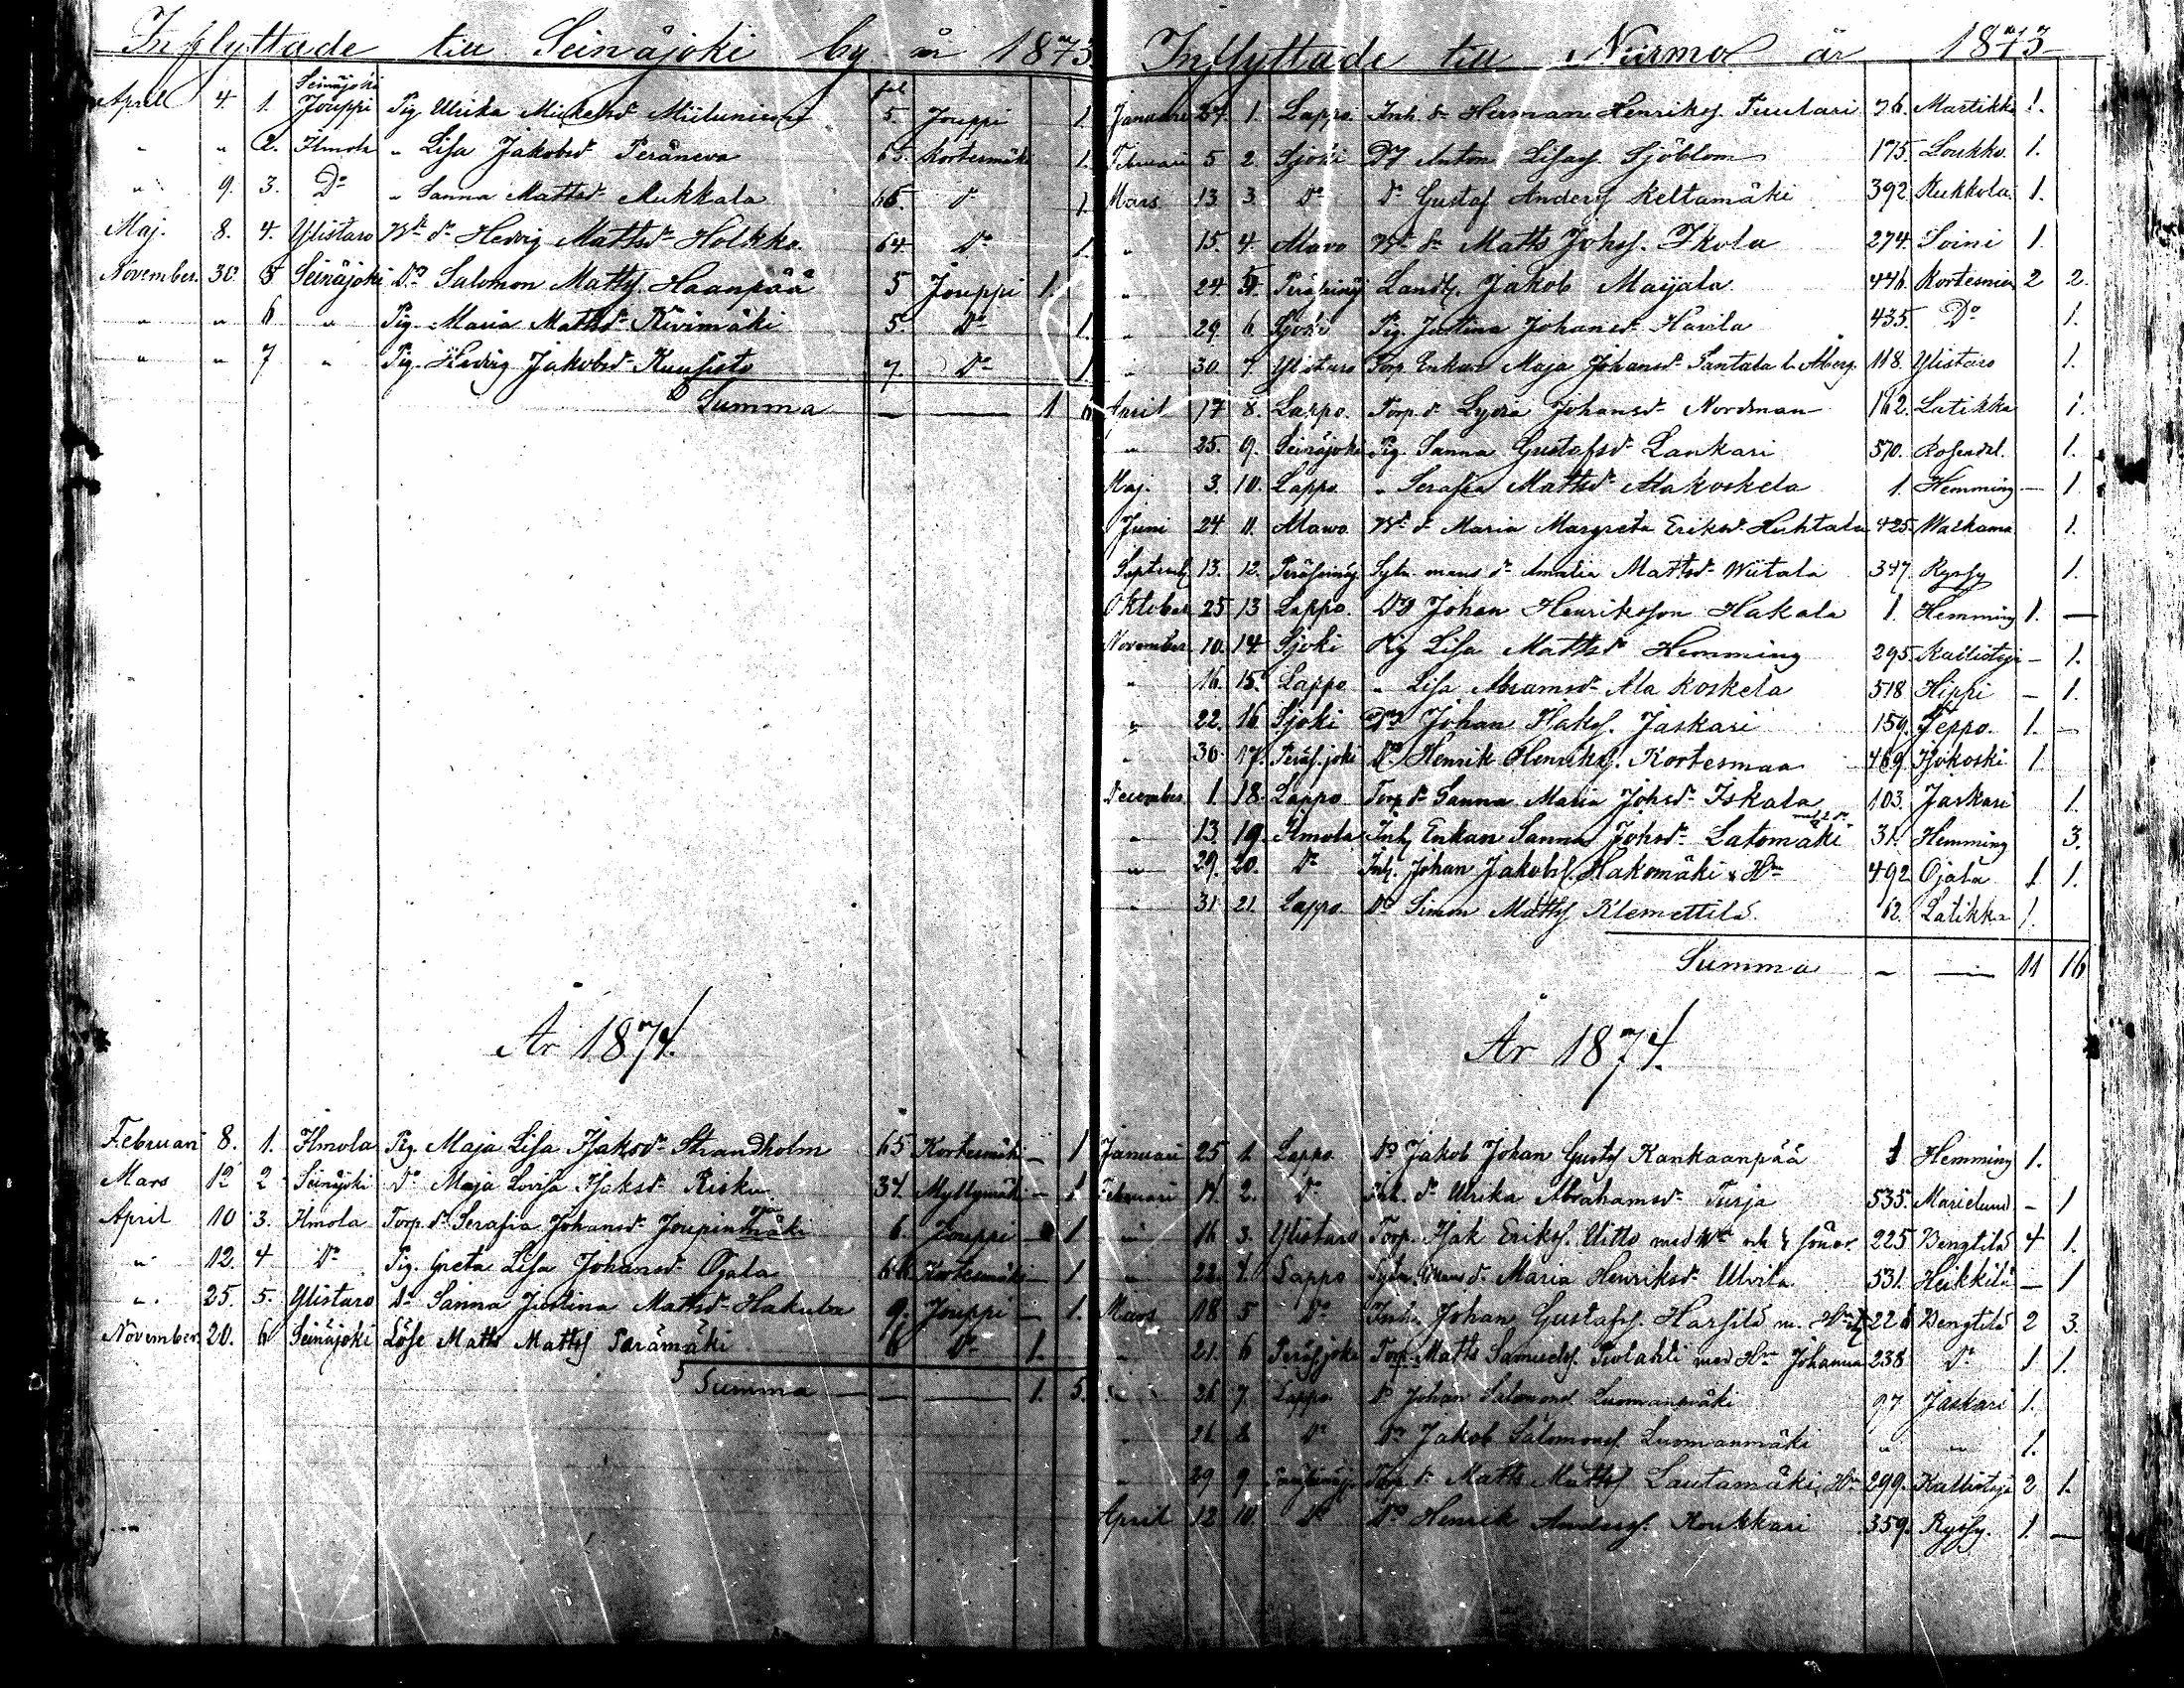 Inflyttade till Seinäjoki by år 1873
Seinäjoki fol
April 4. 1. Jouppi Pig. Ulrika Mickelsd:r 5. Jouppi 1.
" " 2. Ilmola " Lisa Jakobsd:r Peräneva 65. Kortesmäki 1.
" 9. 3. D:o " Sanna Mattsd:r Mukkala 66. d:o 1.
Maj. 8. 4. Ylistaro d:r Hedvig Mattsd:r Holkko 64. D:o 1.
November. 30. 5 Seinäjoki D:g Salomon Mattss. Haanpää 5 Jouppi 1
" " 6 " Pig. Maria Mattsd:r Kivimäki 5. D:o 1.
" " 7 " Pig. Hedvig Jakobsd:r Kuusisto 7. D:o 1
Summa — — 1 6
År 1874.
Februari 8. 1. Ilmola Pig. Maja Lisa Isaksd:r Strandholm 65 Kortesmäki — 1
Mars 12 2 Seinäjoki D:o Maja Lovisa Isaksd:r Risku 34. Myllymäki — 1.
April 10 3. Ilmola Torp. d:r Serafia Johansd:r Joupinmäki 6. Jouppi — 1
" 12. 4 D:o Pig. Greta Lisa Johansd:r Ojala 66. Kortesmäki — 1
" 25. 5. Ylistaro D:o Sanna Justina Mattsd:r Hakula 9. Jouppi — 1.
November 20. 6 Seinäjoki Löse Matts Mattss. Perämäki 6 D:o 1.
Summa — — 1. 5.
Inflyttade till Nurmo år 1873
Januari 27. 1. Lappo Inh. s:n Herman Henrikss. Tuulari 76. Martikka 1.
Februari 5 2. Sjöki Dg Anton Lisass. Sjöblom 175. Loukko. 1.
Mars 13. 3. D:o D:o Gustaf Anderss. Keltamäki 392. Kukkola 1.
" 15. 4. Alavo s:n Matts Johss. Ikola 274. Soini 1.
" 24. 5. Landb. Jakob Maijala 446. Kortesniemi 2 2.
" 29. 6 Sjöki Pig. Justina Johansd:r Havila 435. D:o 1.
" 30. 7. Ylistaro Torp. Enkan Maja Johansd:r Santala l. Åberg. 118. Ylistaro 1.
April 17 8. Lappo. Torp. d:r Lydia Johansd:r Nordman 162. Latikka 1.
" 25. 9. Seinäjoki Pig. Sanna Gustafsd:r Lankari 570. Rosendal. 1.
Maj. 3. 10. Lappo " Serafia Mattsd:r Alakoskela 1. Hemming — 1.
Juni 24. 11. Alawo. d:r Maria Margreta Eriksd:r Huhtala 425. Walkama 1.
Septemb. 13. 12. d:r Amalia Mattsd:r Wiitala 347. Ryssy 1.
Oktober 25 13 Lappo. Dg Johan Henriksson Hakala 1. Hemming 1. —
November 10. 14 Sjöki Pig Lisa Mattsd:r Hemming 295. — 1.
" 16. 15. Lappo " Lisa Abramsd:r Alakoskela 518. Hippi — 1.
" 22. 16 Sjoki Dg Johan Isakss. Jaskari 159. Seppo. 1. —
" 30. 17. Peräs.joki D:g Henrik Henrikss. Kortesmaa 469. 1
December 1. 18. Lappo Torp. d:r Sanna Maria Johsd:r Iskala 103. Jaskari 1.
" 13. 19. Ilmola Inh. Enkan Sanna Johsd:r Latomäki 31. Hemming 3.
" 29. 20. D:o Inh. Johan Jakobss. Hakomäki & H:u 492 Ojala 1 1.
" 31. 21. Lappo D:g Simon Mattss. Klemettilä 62. Latikka 1.
Summa — — 11 16
År 1874.
Januari 25 1. Lappo D:g Jakob Johan Gustafs. Kankaanpää 1 Hemming 1.
Februari 14. 2. D:o Inh. d:r Ulrika Abrahamsd:r Turja 535. Marielund — 1
" 16 3. Ylistaro Torp. Isak Erikss. Uitto med H:u och söner. 225 Bengtilä 4 1.
" 22. 4. Lappo d:r Maria Henriksd:r Ulvila 531. Heikkilä — 1
Mars 18 5 D:o Inh. Johan Gustafss. Harsilä m. H:u 226 Bengtilä 2 3.
" 21. 6 Peräsjoki Torp. Matts Samuelss. med H:u Johanna 238 D:o 1 1.
" 26 7. Lappo. D:g Johan Salomons. Luomanmäki 97 Jaskari 1.
" 26. 8 D:o D:g Jakob Salomonss. Luomanmäki " " 1.
" 29 9 Torp. s:n Matts Mattss. Lautamäki, H:u 299. 2 1.
April 12 10. D:o D:g Henrik Anderss. Koukkari 359. Ryssy. 1. —